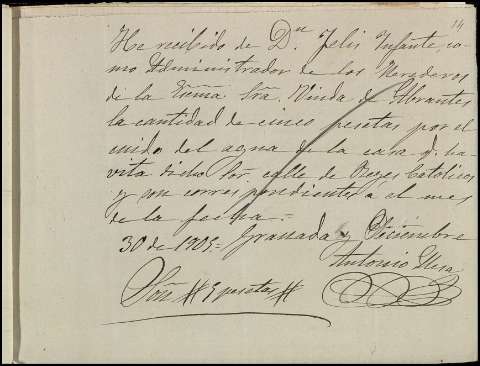 14
He recibido de Dn. Felix Infante, co-
mo Administrador de los Herederos
de la Exma Sra. Viuda de Abrantes
la cantidad de cinco pesetas por el
cuido del agua de la casa q. ha-
vita dicho Sr. calle de Reyes Catolicos
y son correspondientes a el mes
de la fecha.=
30 de 1905= Granada y Diciembre
Antonio
Son # 5 pesetas #